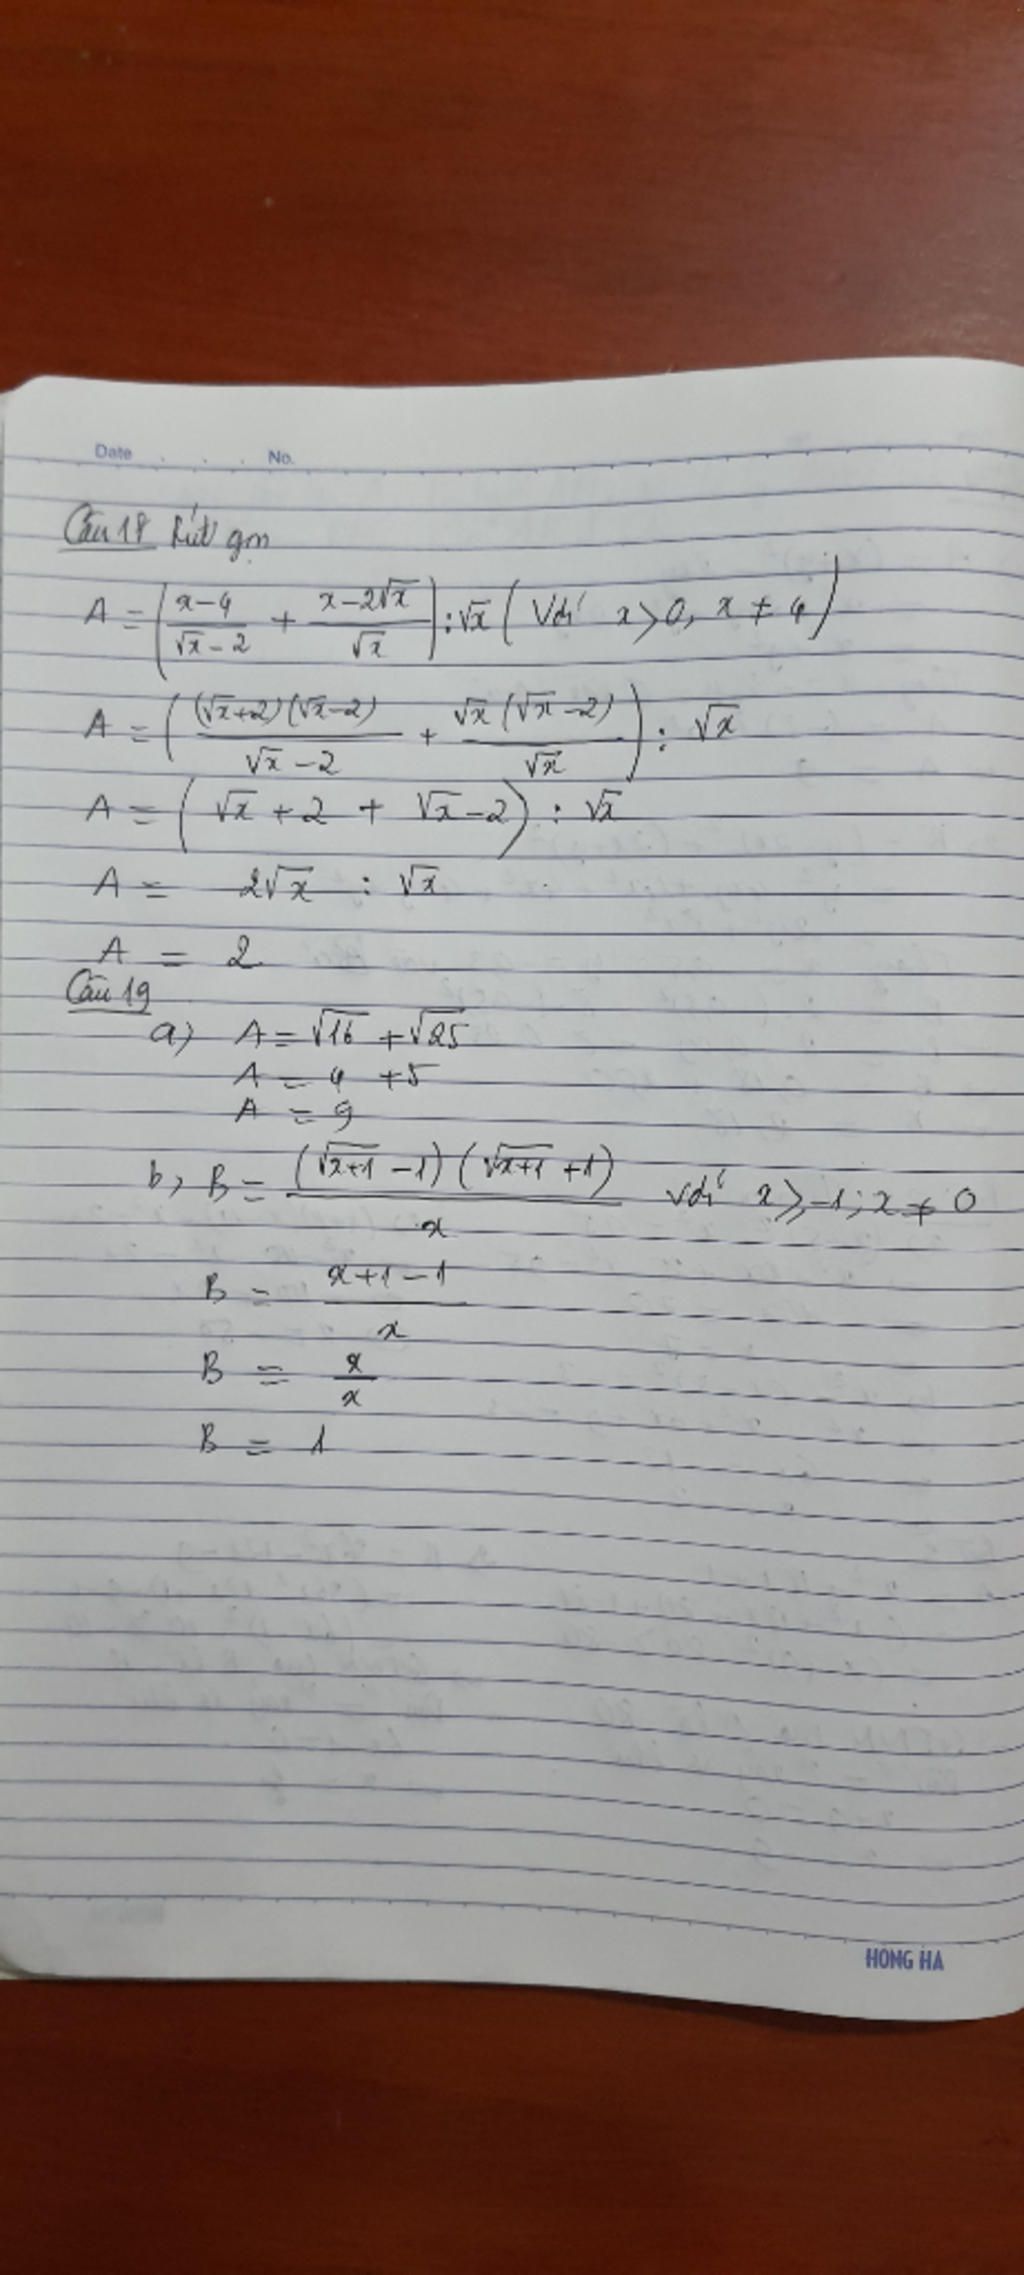 Date No.
Câu 18 Rút gọn
A = (x-4/√x-2 + x-2√x/√x) : √x (Với x>0, x≠4)
A = ((√x+2)(√x-2)/√x-2 + √x(√x-2)/√x) : √x
A = (√x+2 + √x-2) : √x
A = 2√x : √x
A = 2
Câu 19
a) A = √16 + √25
A = 4 + 5
A = 9
b, B = (√x+1 -1)(√x+1 +1)/x với x ≥ -1; x ≠ 0
B = x+1-1/x
B = x/x
B = 1
HONG HA